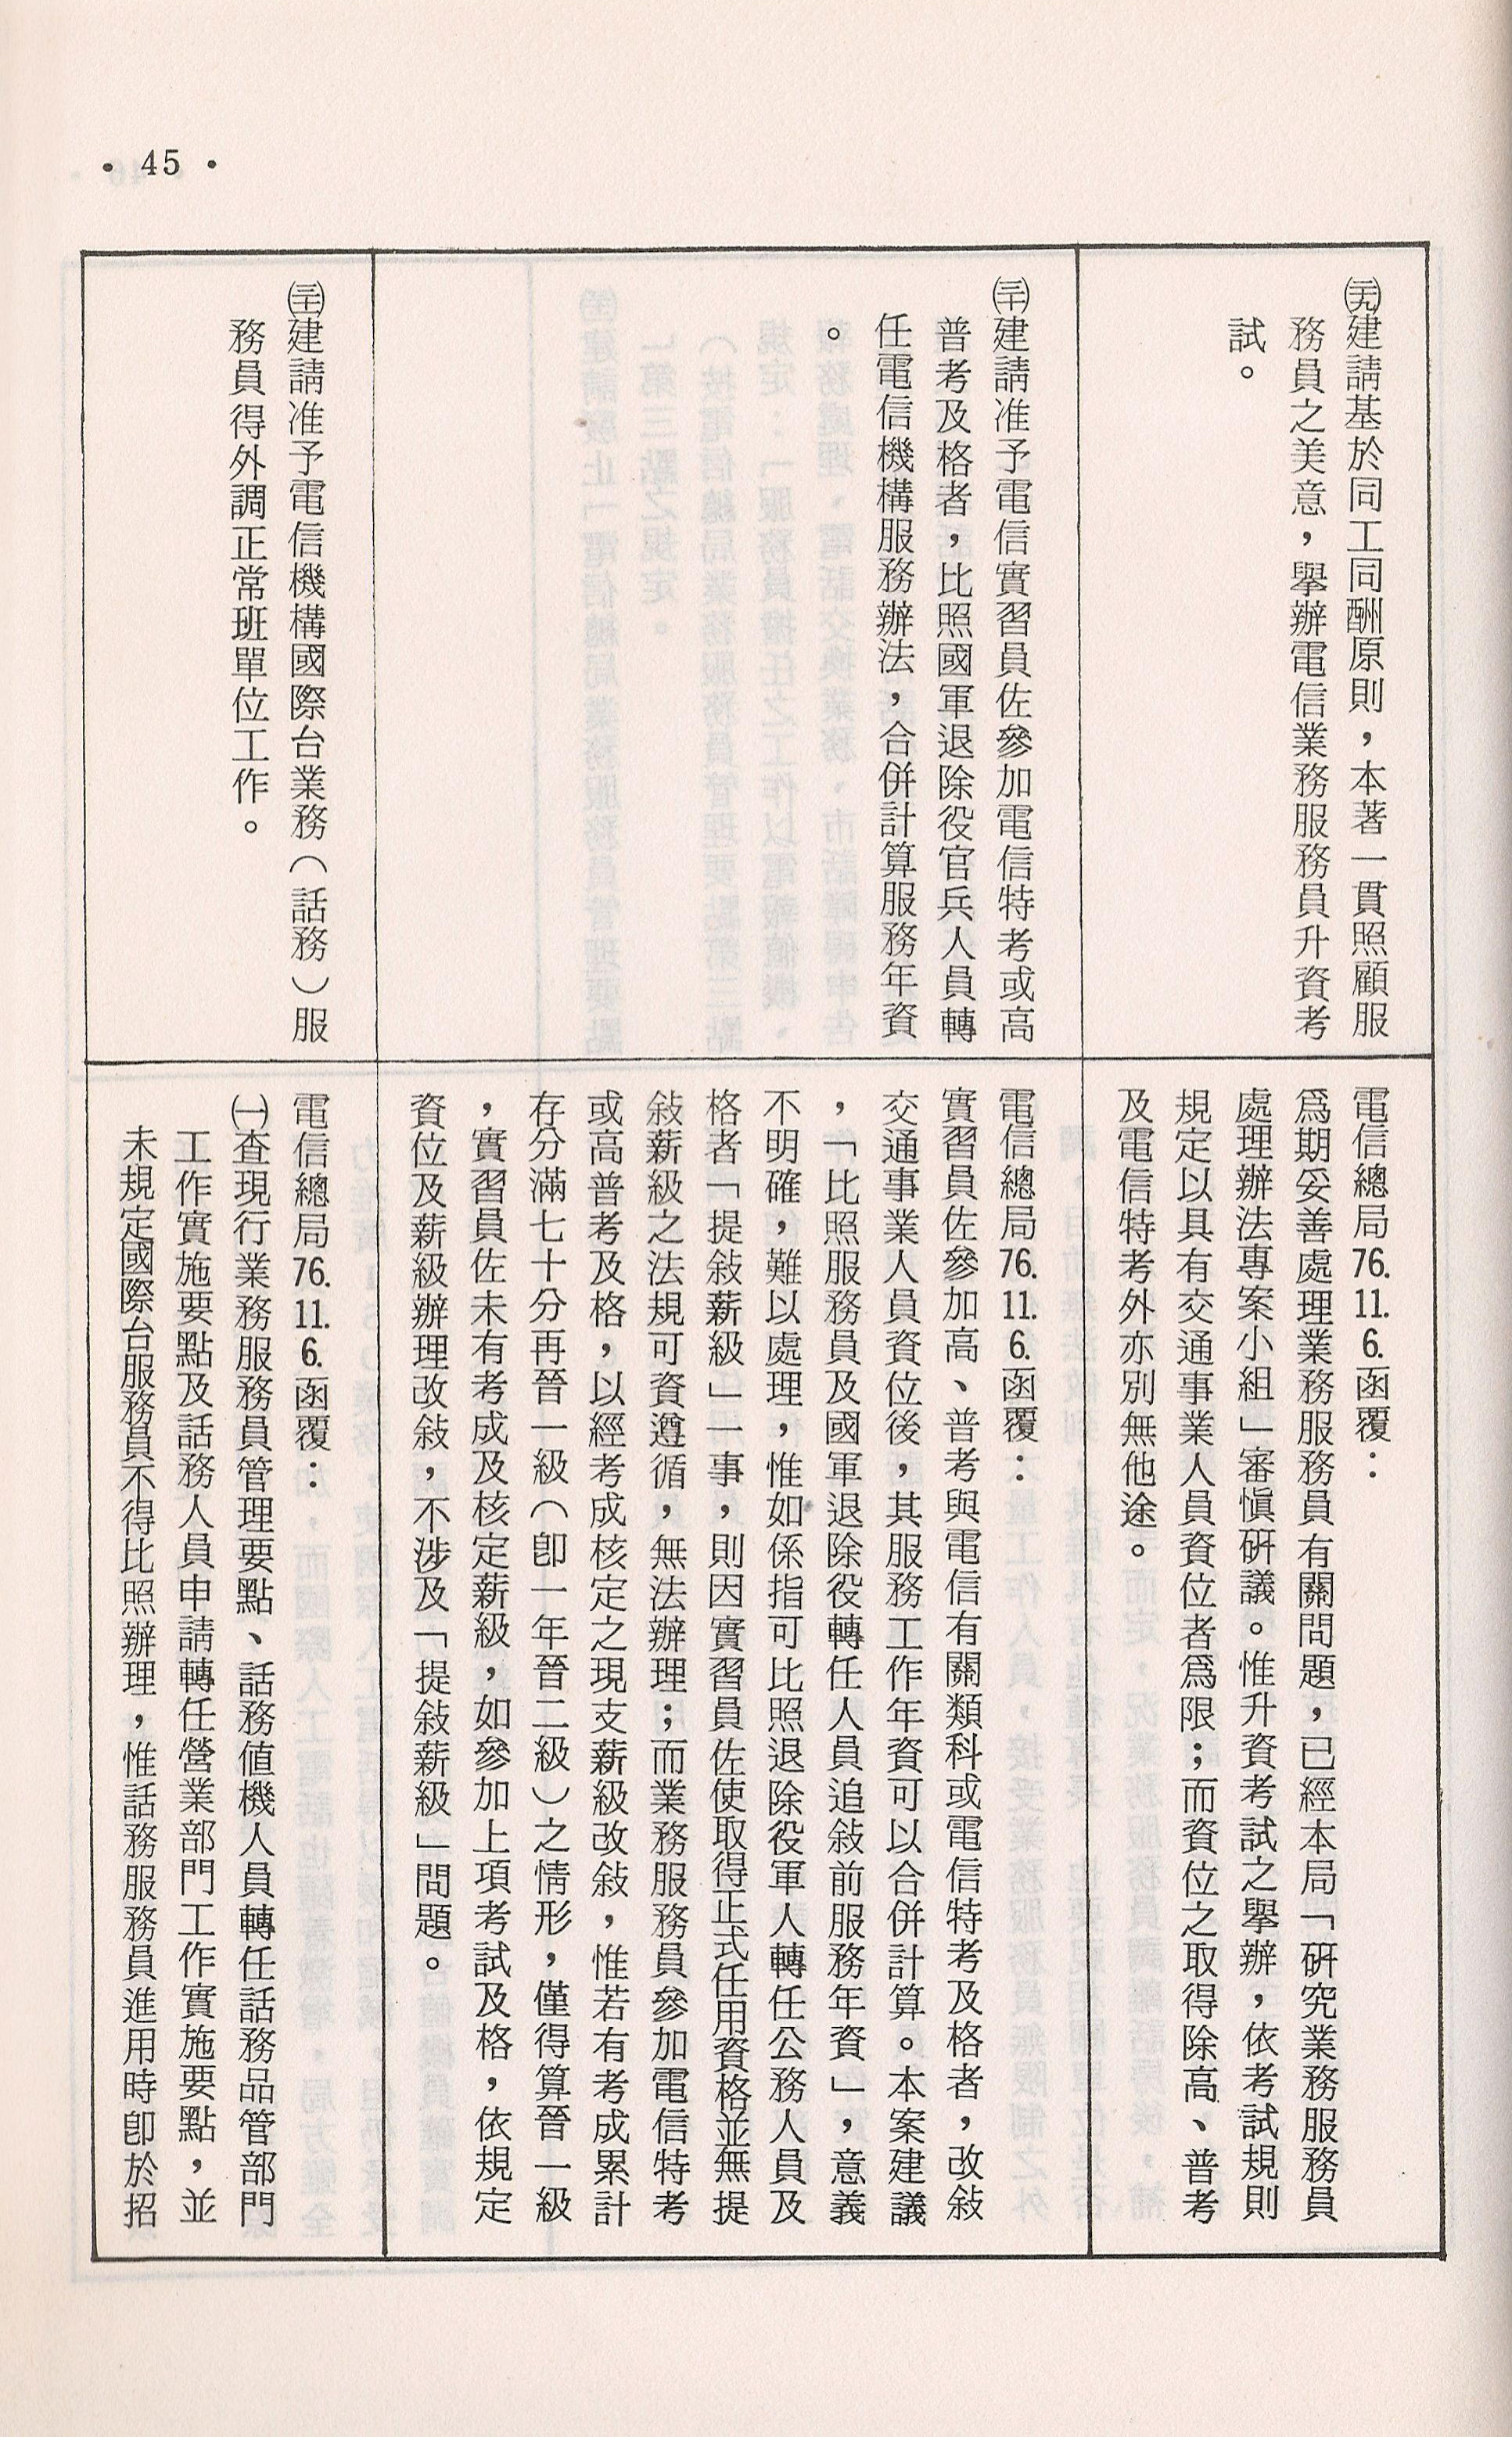 • 45 •
㈡九建請基於同工同酬原則，本著一貫照顧服
務員之美意，舉辦電信業務服務員升資考
試。
電信總局76.11.6.函覆：
爲期妥善處理業務服務員有關問題，已經本局「研究業務服務員
處理辦法專案小組」審愼研議。惟升資考試之舉辦，依考試規則
規定以具有交通事業人員資位者爲限；而資位之取得除高、普考
及電信特考外亦別無他途。
㈢十建請准予電信實習員佐參加電信特考或高
普考及格者，比照國軍退除役官兵人員轉
任電信機構服務辦法，合併計算服務年資
。
電信總局76.11.6.函覆：
實習員佐參加高、普考與電信有關類科或電信特考及格者，改敍
交通事業人員資位後，其服務工作年資可以合併計算。本案建議
，「比照服務員及國軍退除役轉任人員追敍前服務年資」，意義
不明確，難以處理，惟如係指可比照退除役軍人轉任公務人員及
格者「提敍薪級」一事，則因實習員佐使取得正式任用資格並無提
敍薪級之法規可資遵循，無法辦理；而業務服務員參加電信特考
或高普考及格，以經考成核定之現支薪級改敍，惟若有考成累計
存分滿七十分再晉一級（卽一年晉二級）之情形，僅得算晉一級
，實習員佐未有考成及核定薪級，如參加上項考試及格，依規定
資位及薪級辦理改敍，不涉及「提敍薪級」問題。
建請准予電信機構國際台業務（話務）服
務員得外調正常班單位工作。
電信總局76.11.6.函覆：
㈠查現行業務服務員管理要點、話務値機人員轉任話務品管部門
工作實施要點及話務人員申請轉任營業部門工作實施要點，並
未規定國際台服務員不得比照辦理，惟話務服務員進用時卽於招